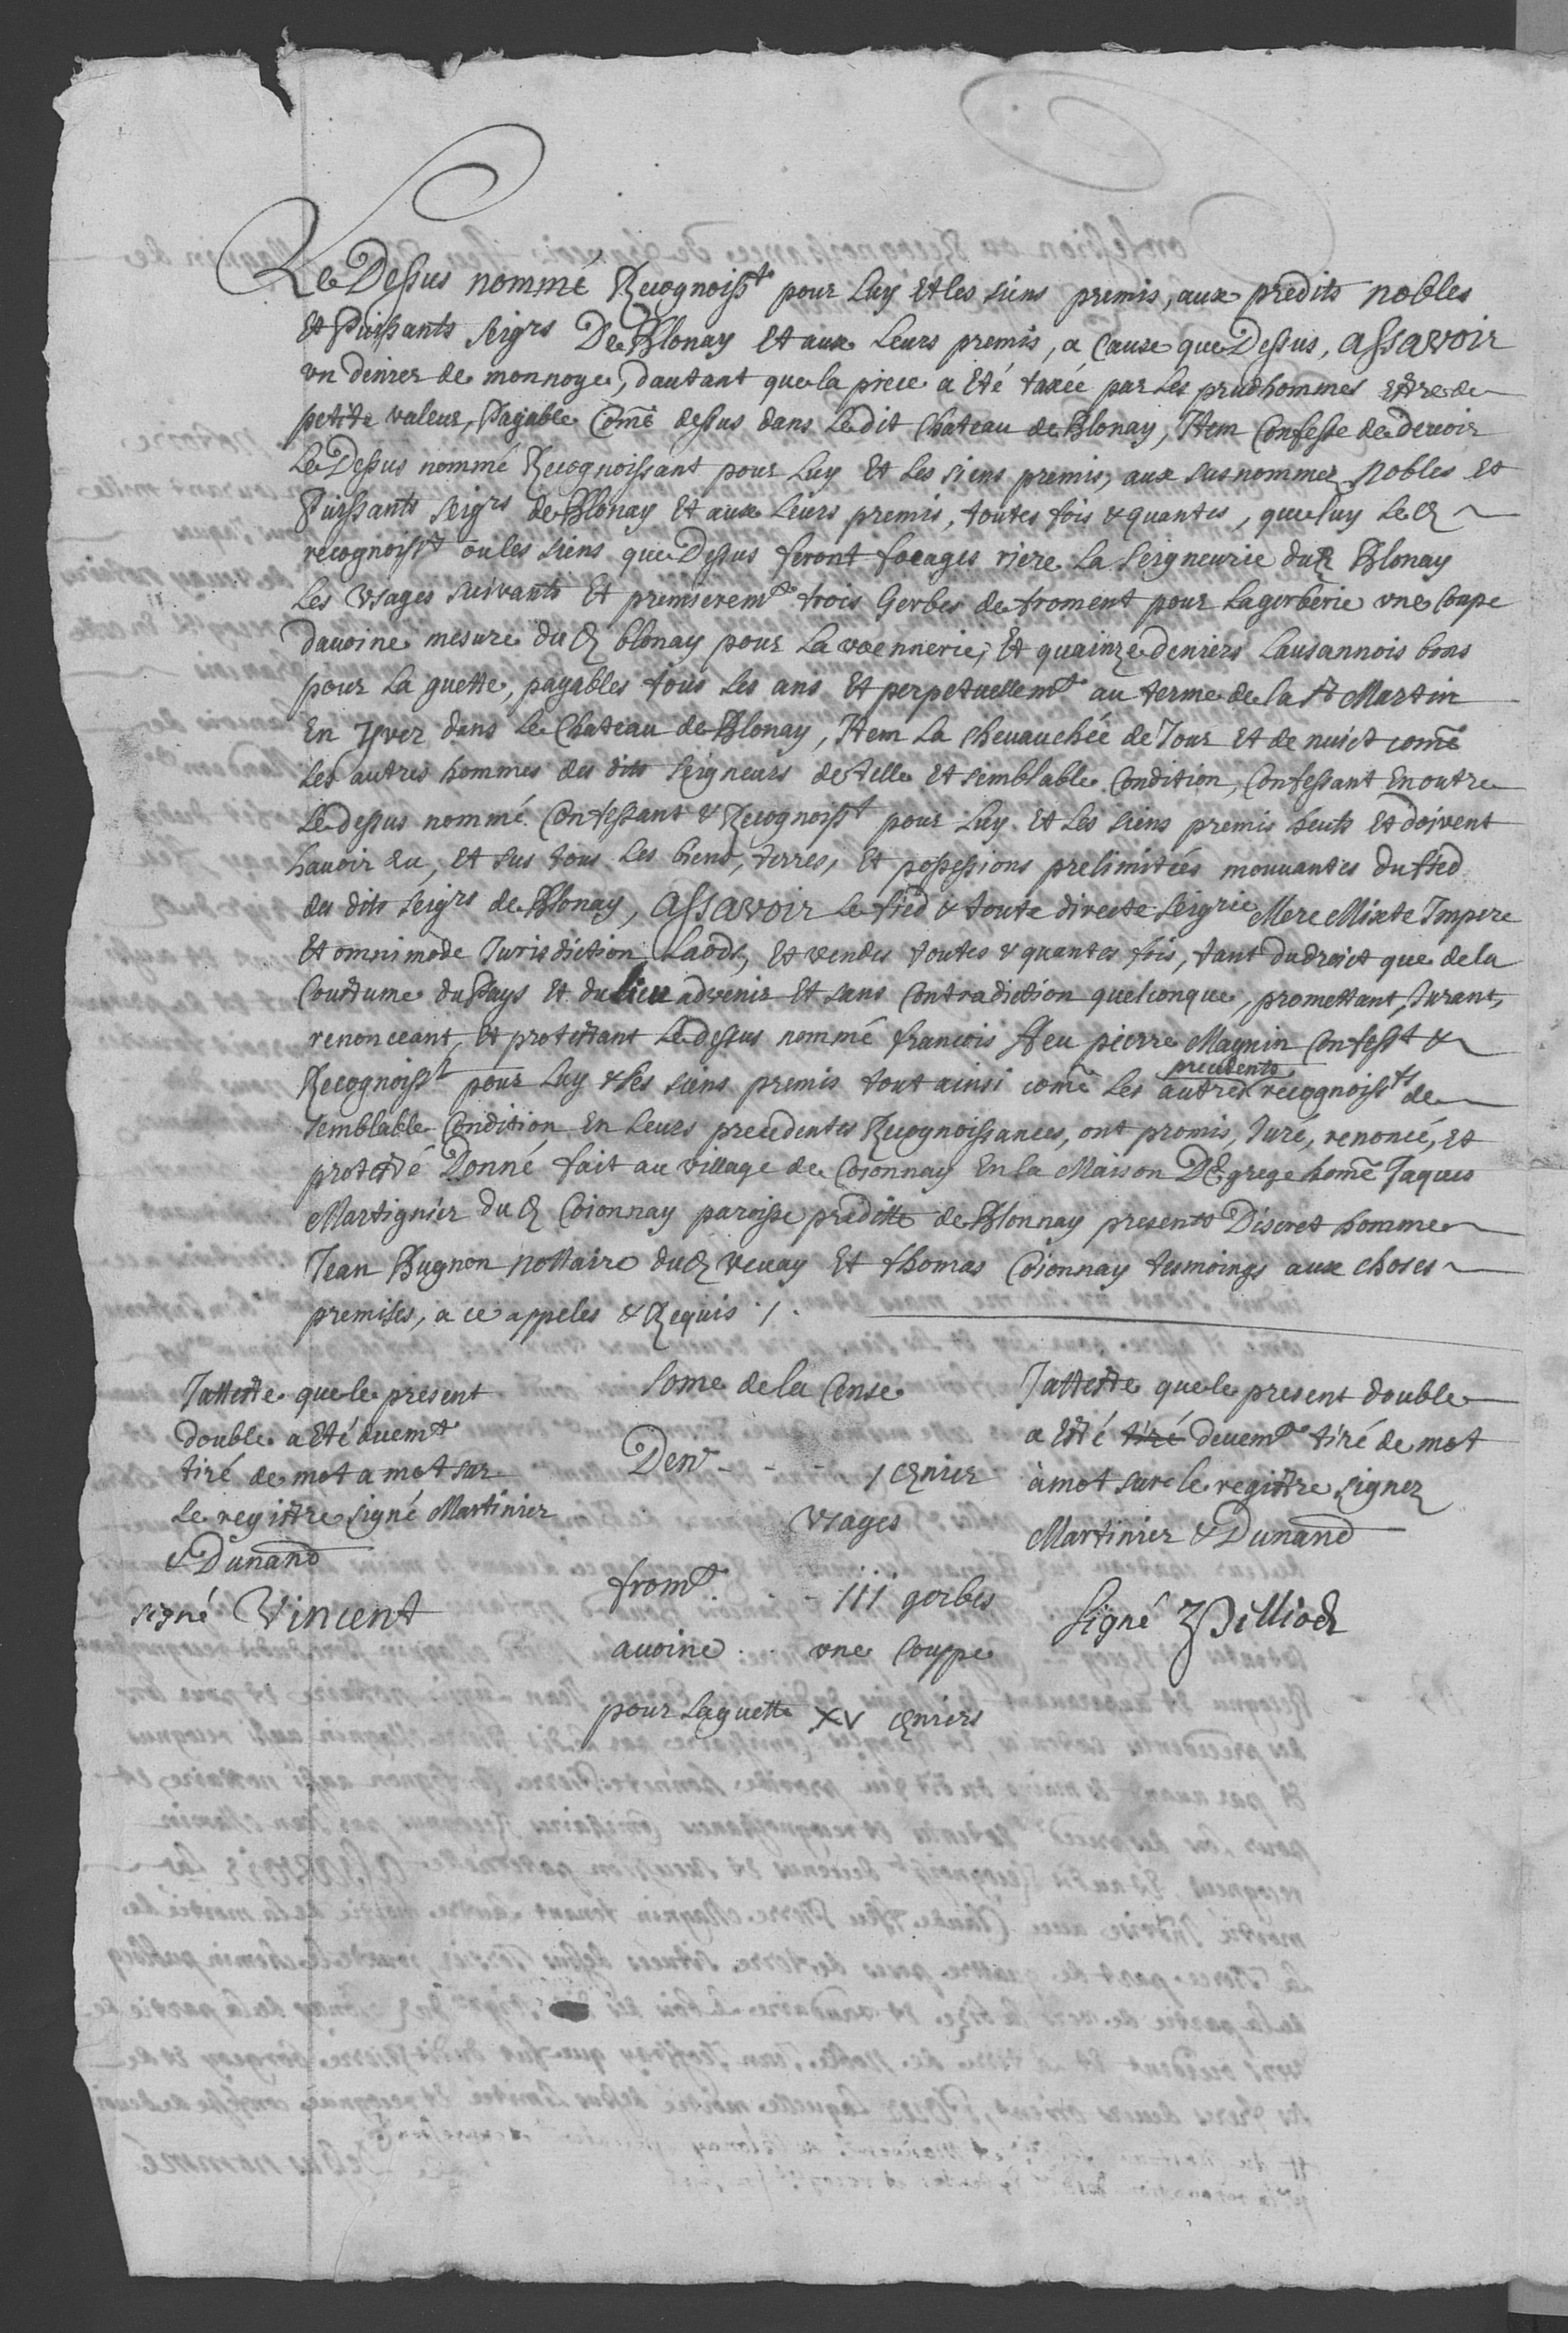 Le Dessus nommé Recognoisst pour Luy Et les siens premis, aux predits nobles
Et Puissants seigrs De Blonay Et aux Leurs premis, a Cause que Dessus, Assavoir
un denier de monnoye, dautant que la piece a Eté taxée par Les prudhommes Estre de
petite valeur, Payable Come dessus dans Ledit Chateau de Blonay, Item Confesse de devoir
Le Dessus nommé Recognoissant pour Luy Et Les siens premis, aux susnommez Nobles Et
Puissants seigrs de Blonay Et aux Leurs premis, toutes fois & quantes, que luy Le d
recognoisst ou les siens que Dessus feront focages riere La Seigneurie dud Blonay
Les Usages suivants Et premierement trois Gerbes de froment pour La gerberie une Coupe
davoine mesure dud blonay pour La voennerie, Et quainze deniers Lausannois bons
pour La guette, payables tous Les ans Et perpetuellemt au terme de la St Martin
En Yver dans Le Chateau de Blonay, Item La Chevauchée de Jour Et de nuict comē
Les autres hommes des dits Seigneurs de telle Et semblable Condition, Confessant En outre
Le dessus nommé Confessant & Recognoisst pour Luy Et Les siens premis heuts Et doivent
havoir Eu, Et sus tous Les biens, terres, Et possessions prelimitées mouvantes du fied
des dits seigrs de Blonay, Assavoir Le fied & toute directe Seigrie Mere Mixte Impere
Et omnimode Jurisdiction, Laods, Et vendes toutes & quantes fois, tant du droict que de la
Coustume du Pays Et du lieu advenir Et sans Contradiction quelconque, promettant, Jurant,
renonceant, Et protestant Le dessus nommé francois ffeu pierre Magnin Confesst &
precedents
Recognoisst pour Luy & Les siens premis tout ainsi comē Les autres recognoissts de
semblable Condition En Leurs precedentes Recognoissances, ont promis, Juré, renoncé, Et
protesté Donné fait au village de Coionnay En la Maison D'Egrege homē Jaques
Martignier dud Coionnay paroisse preditte de Blonnay presents Discret homme
Jean Bugnon nottaire dud Vevay Et thomas Coionnay tesmoings aux choses
premises, a ce appeles & Requis ./.
Jatteste que le present
double a Eté duemt
tiré de mot a mot sur
Le registre signé Martinier
& Dunand
signé Vincent
Some de la Cense
Denr - - - 1 denier
Usages
fromt . - iii gerbes
avoine . . une Couppe
pour La guette XV deniers
Jatteste que le present double
a Esté tiré devemt tiré de mot
à mot sur le registre signez
Martinier & Dunand
Signé Pilliod